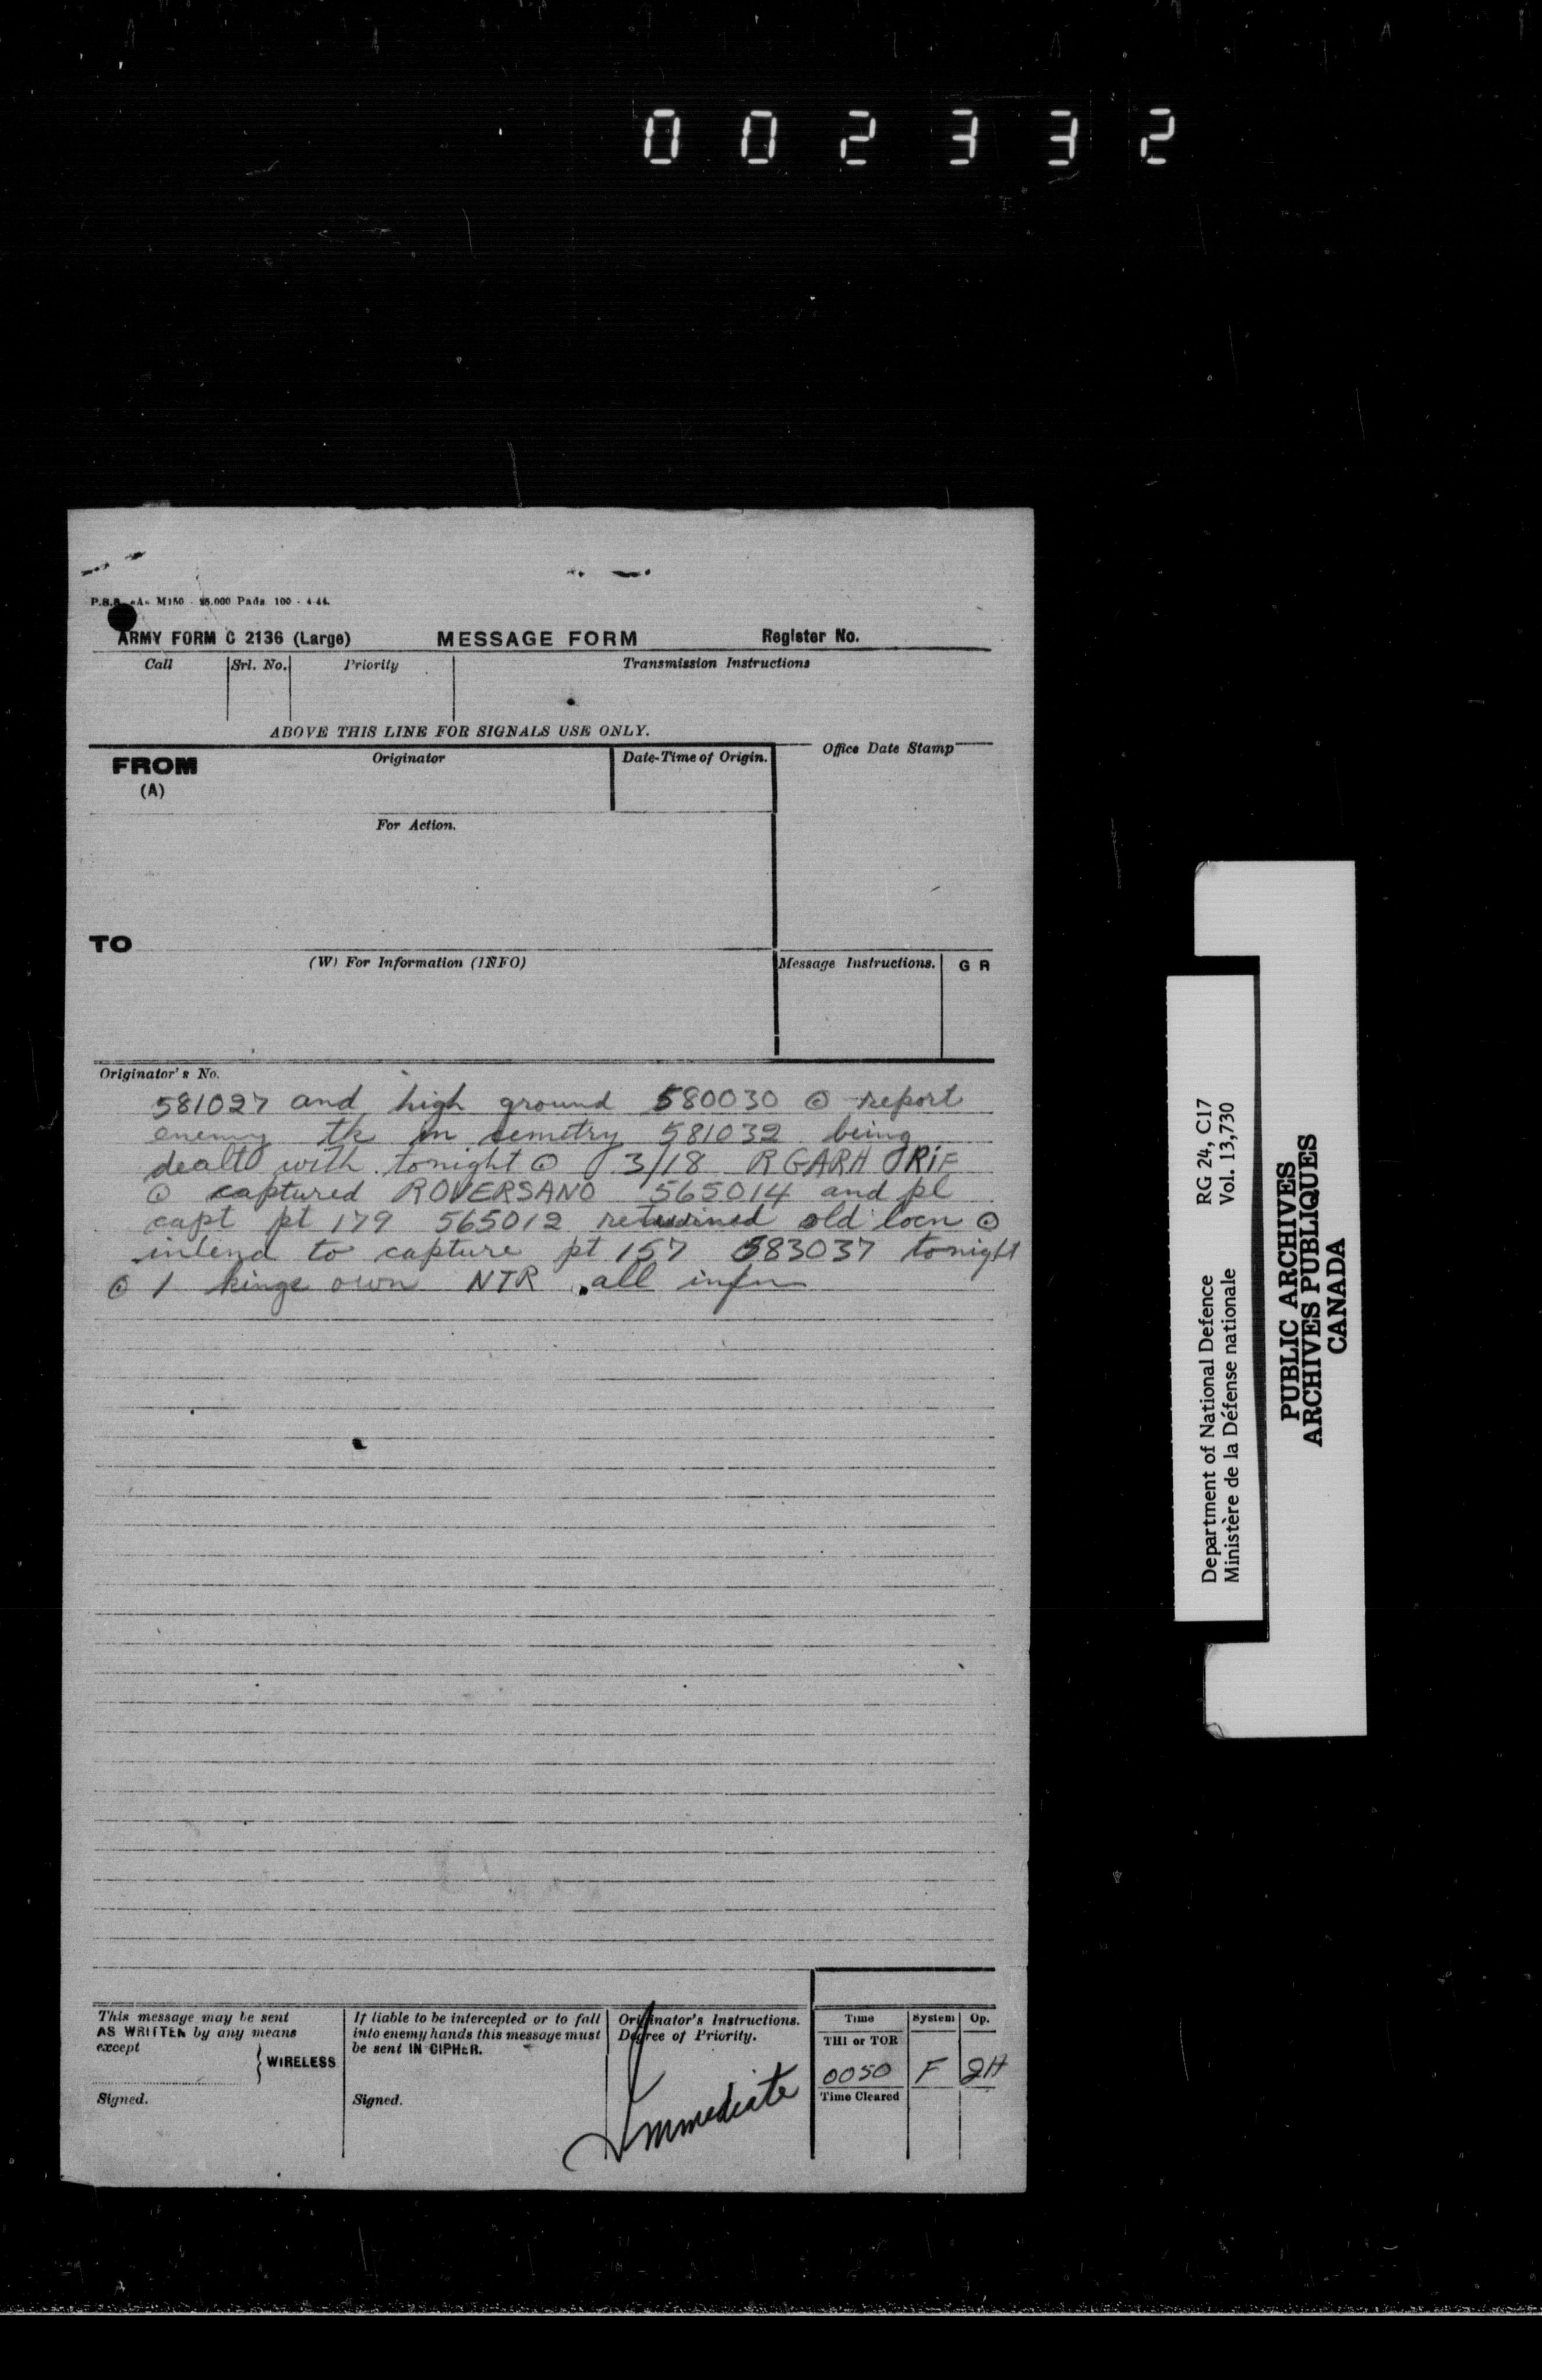 002332
P.S.S. -A- M150 - 25.000 Pads 100 - 4-44.
ARMY FORM C 2136 (Large) MESSAGE FORM Register No.
Call Srl. No. Priority Transmission Instructions
ABOVE THIS LINE FOR SIGNALS USE ONLY.
FROM Originator Date-Time of Origin. Office Date Stamp
(A)
For Action.
TO
(W) For Information (INFO) Message Instructions. G R
Originator's No.
581027 and high ground 580030 ⊙ report
enemy tk in semetry 581032 being
dealt with tonight ⊙ 3/18 R GARH RIF
⊙ captured ROVERSANO 565014 and pl
capt pt 179 565012 returined old locn ⊙
intend to capture pt 157 583037 tonight
⊙ 1 kings own NTR . all infm
This message may be sent
AS WRITTEN by any means
except
WIRELESS
Signed.
If liable to be intercepted or to fall
into enemy hands this message must
be sent IN CIPHER.
Signed.
Originator's Instructions.
Degree of Priority.
Immediate
Time System Op.
THI or TOR
0050 F 2H
Time Cleared
Department of National Defence RG 24, C17
Ministère de la Défense nationale Vol. 13,730
PUBLIC ARCHIVES
ARCHIVES PUBLIQUES
CANADA